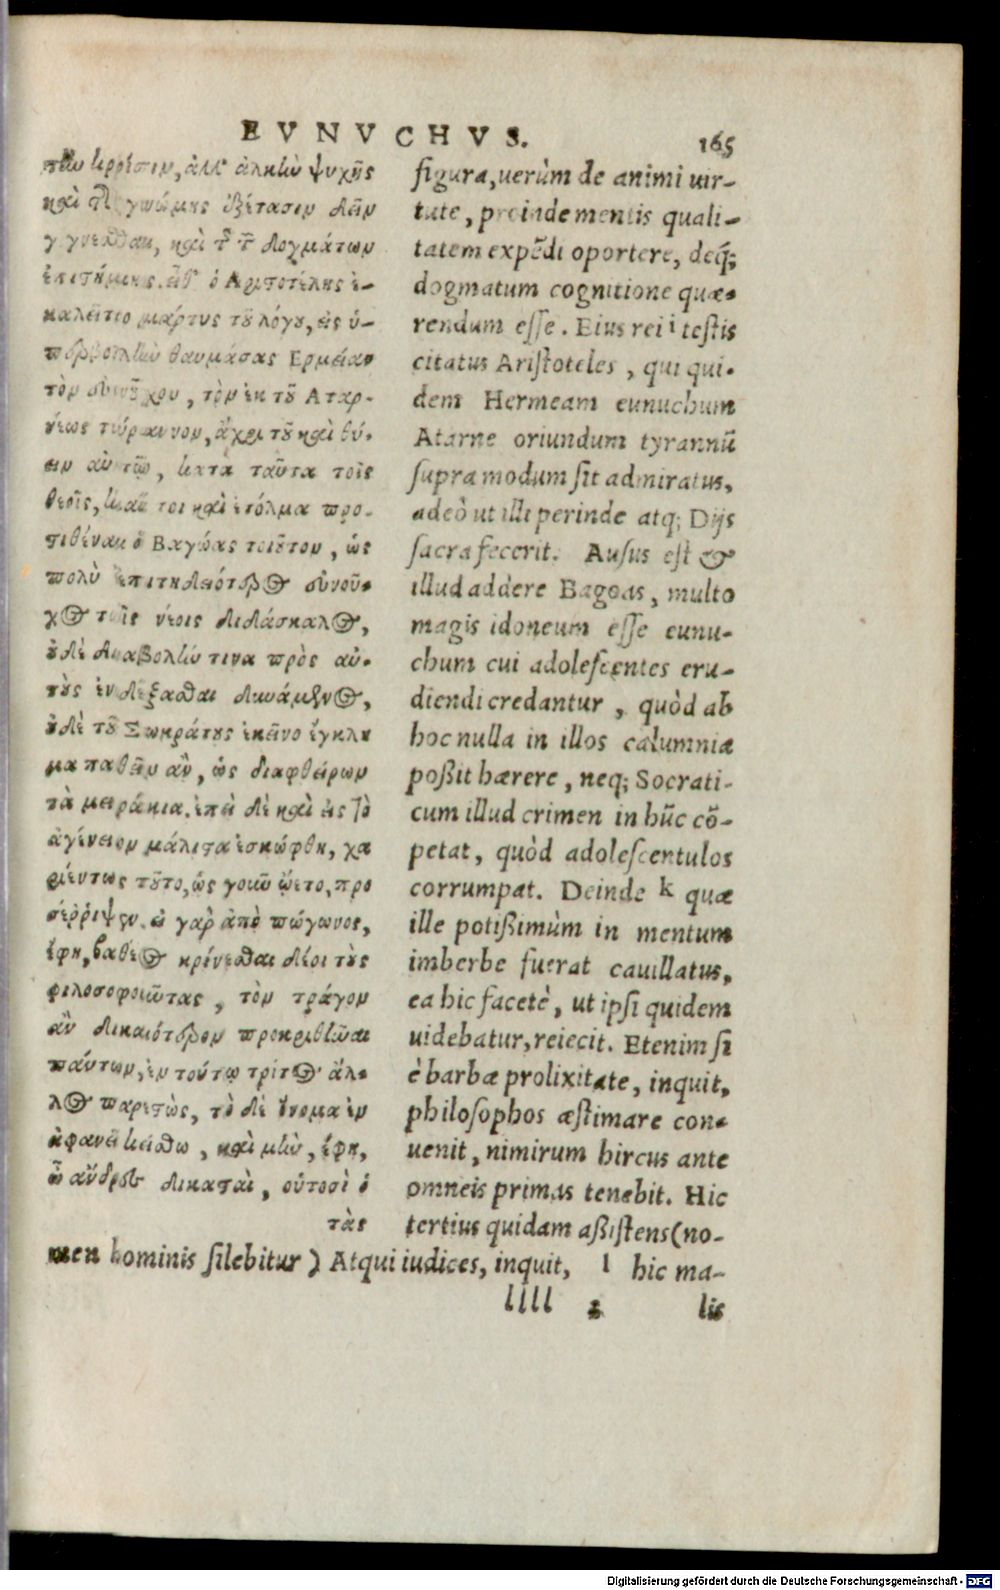 EVNVCHVS. 165
κρίσιν, ἀλλ' ἀλκὴν ψυχῆς
καὶ τῆς γνώμης ἐξέτασιν δεῖν
γίγνεσθαι, καὶ τῆς τῶν δογμάτων
ἐπιστήμης. εἶθ' ὁ Αριστοτέλης ἐ-
καλεῖτο μάρτυς τοῦ λόγου, εἰς ὑ-
περβολὴν θαυμάσας Ερμείαν
τὸν εὐνοῦχον, τὸν ἐκ τοῦ Αταρ-
νέως τύραννον, ἄχρι τοῦ καὶ θύ-
ειν αὐτῷ, κατὰ ταῦτα τοῖς
θεοῖς, τοι καὶ ἐτόλμα προ-
τιθέναι ὁ Βαγώας τοιοῦτον, ὡς
πολὺ ἐπιτηδειότερος εὐνοῦ-
χος τοῖς νέοις διδάσκαλος,
οὐδὲ διαβολήν τινα πρὸς αὐ-
τοὺς ἐνδέξασθαι δυνάμενος,
οὐδὲ τοῦ Σωκράτους ἐκεῖνο ἔγκλη
μα παθεῖν ἂν, ὡς διαφθείρων
τὰ μειράκια. ἐπεὶ δὲ καὶ εἰς τὸ
ἀγένειον μάλιστα ἐσκώφθη, χα
ριέντως τοῦτο, ὡς γοῦν ᾤετο, προ
σέῤῥιψεν. εἰ γὰρ ἀπὸ πώγωνος,
ἔφη, βαθέος κρίνεσθαι δέοι τοὺς
φιλοσοφοιῶτας, τὸν τράγον
ἂν δικαιότερον προκριθῆναι
πάντων, ἐν τούτῳ τρίτος ἄλ-
λος παρεστὼς, τὸ δὲ ὄνομα ἐν
ἀφανεῖ κείσθω, καὶ μὴν, ἔφη,
ὦ ἄνδρες δικασταὶ, οὑτοσὶ ὁ
τὰς
figura, uerùm de animi uir-
tute, proinde mentis quali-
tatem expēdi oportere, deq́;
dogmatum cognitione quæ-
rendum esse. Eius rei i testis
citatus Aristoteles, qui qui-
dem Hermeam eunuchum
Atarne oriundum tyrannū
supra modum sit admiratus,
adeò ut illi perinde atq; Dijs
sacra fecerit. Ausus est &
illud addere Bagoas, multo
magis idoneum esse eunu-
chum cui adolescentes eru-
diendi credantur, quòd ab
hoc nulla in illos calumnia
poßit hærere, neq; Socrati-
cum illud crimen in hūc cō-
petat, quòd adolescentulos
corrumpat. Deinde k quæ
ille potißimùm in mentum
imberbe fuerat cauillatus,
ea hic facetè, ut ipsi quidem
uidebatur, reiecit. Etenim si
è barbæ prolixitate, inquit,
philosophos æstimare con-
uenit, nimirum hircus ante
omneis primas tenebit. Hic
tertius quidam aßistens (no-
men hominis silebitur) Atqui iudices, inquit, l hic ma-
llll 2 lis
Digitalisierung gefördert durch die Deutsche Forschungsgemeinschaft - DFG